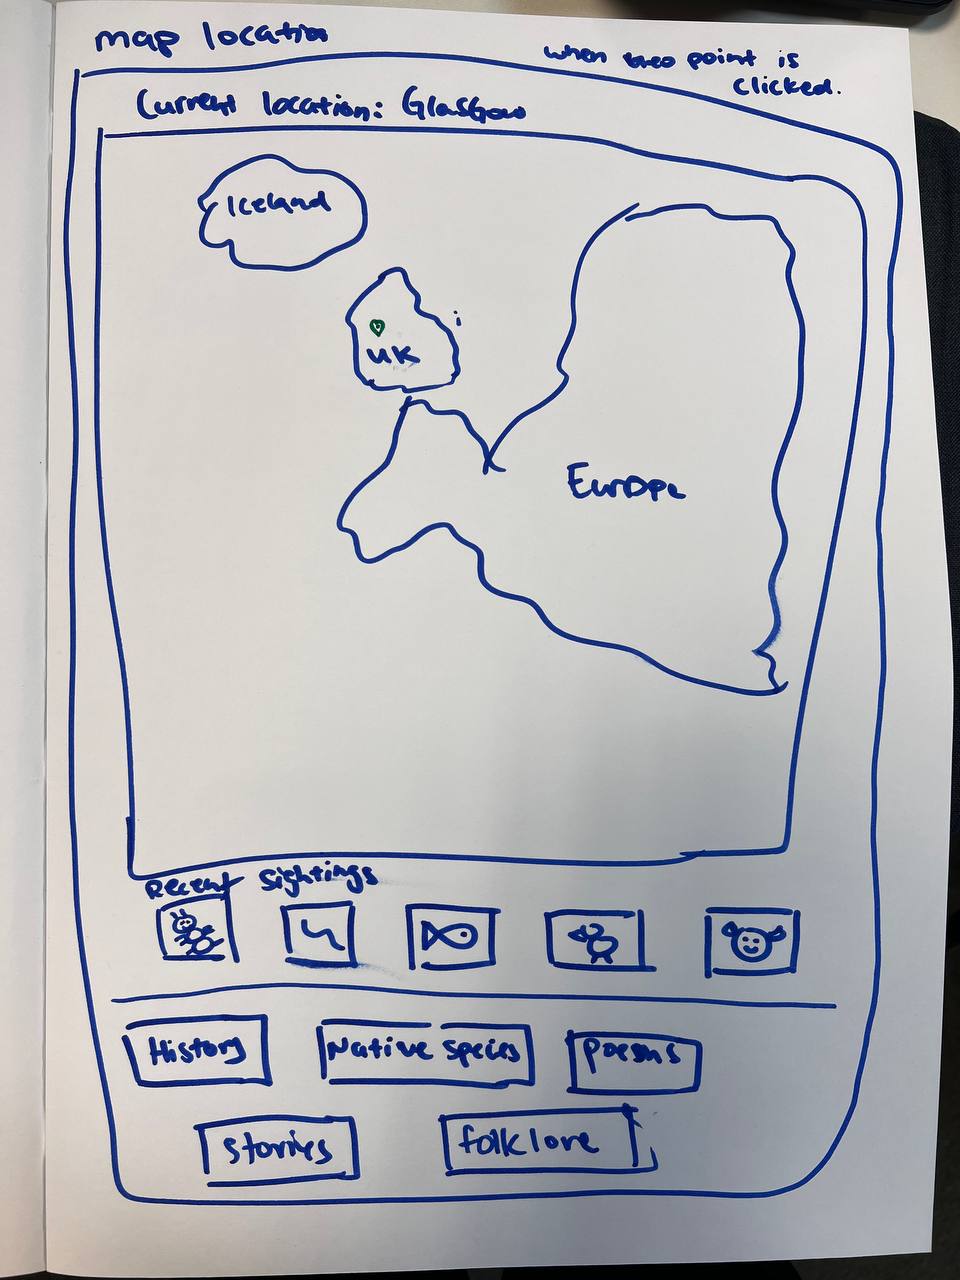 map location
when the point is
clicked.
Current location: Glasgow
Iceland
UK
Europe
Recent Sightings
History
Native Species
Poems
Stories
folklore